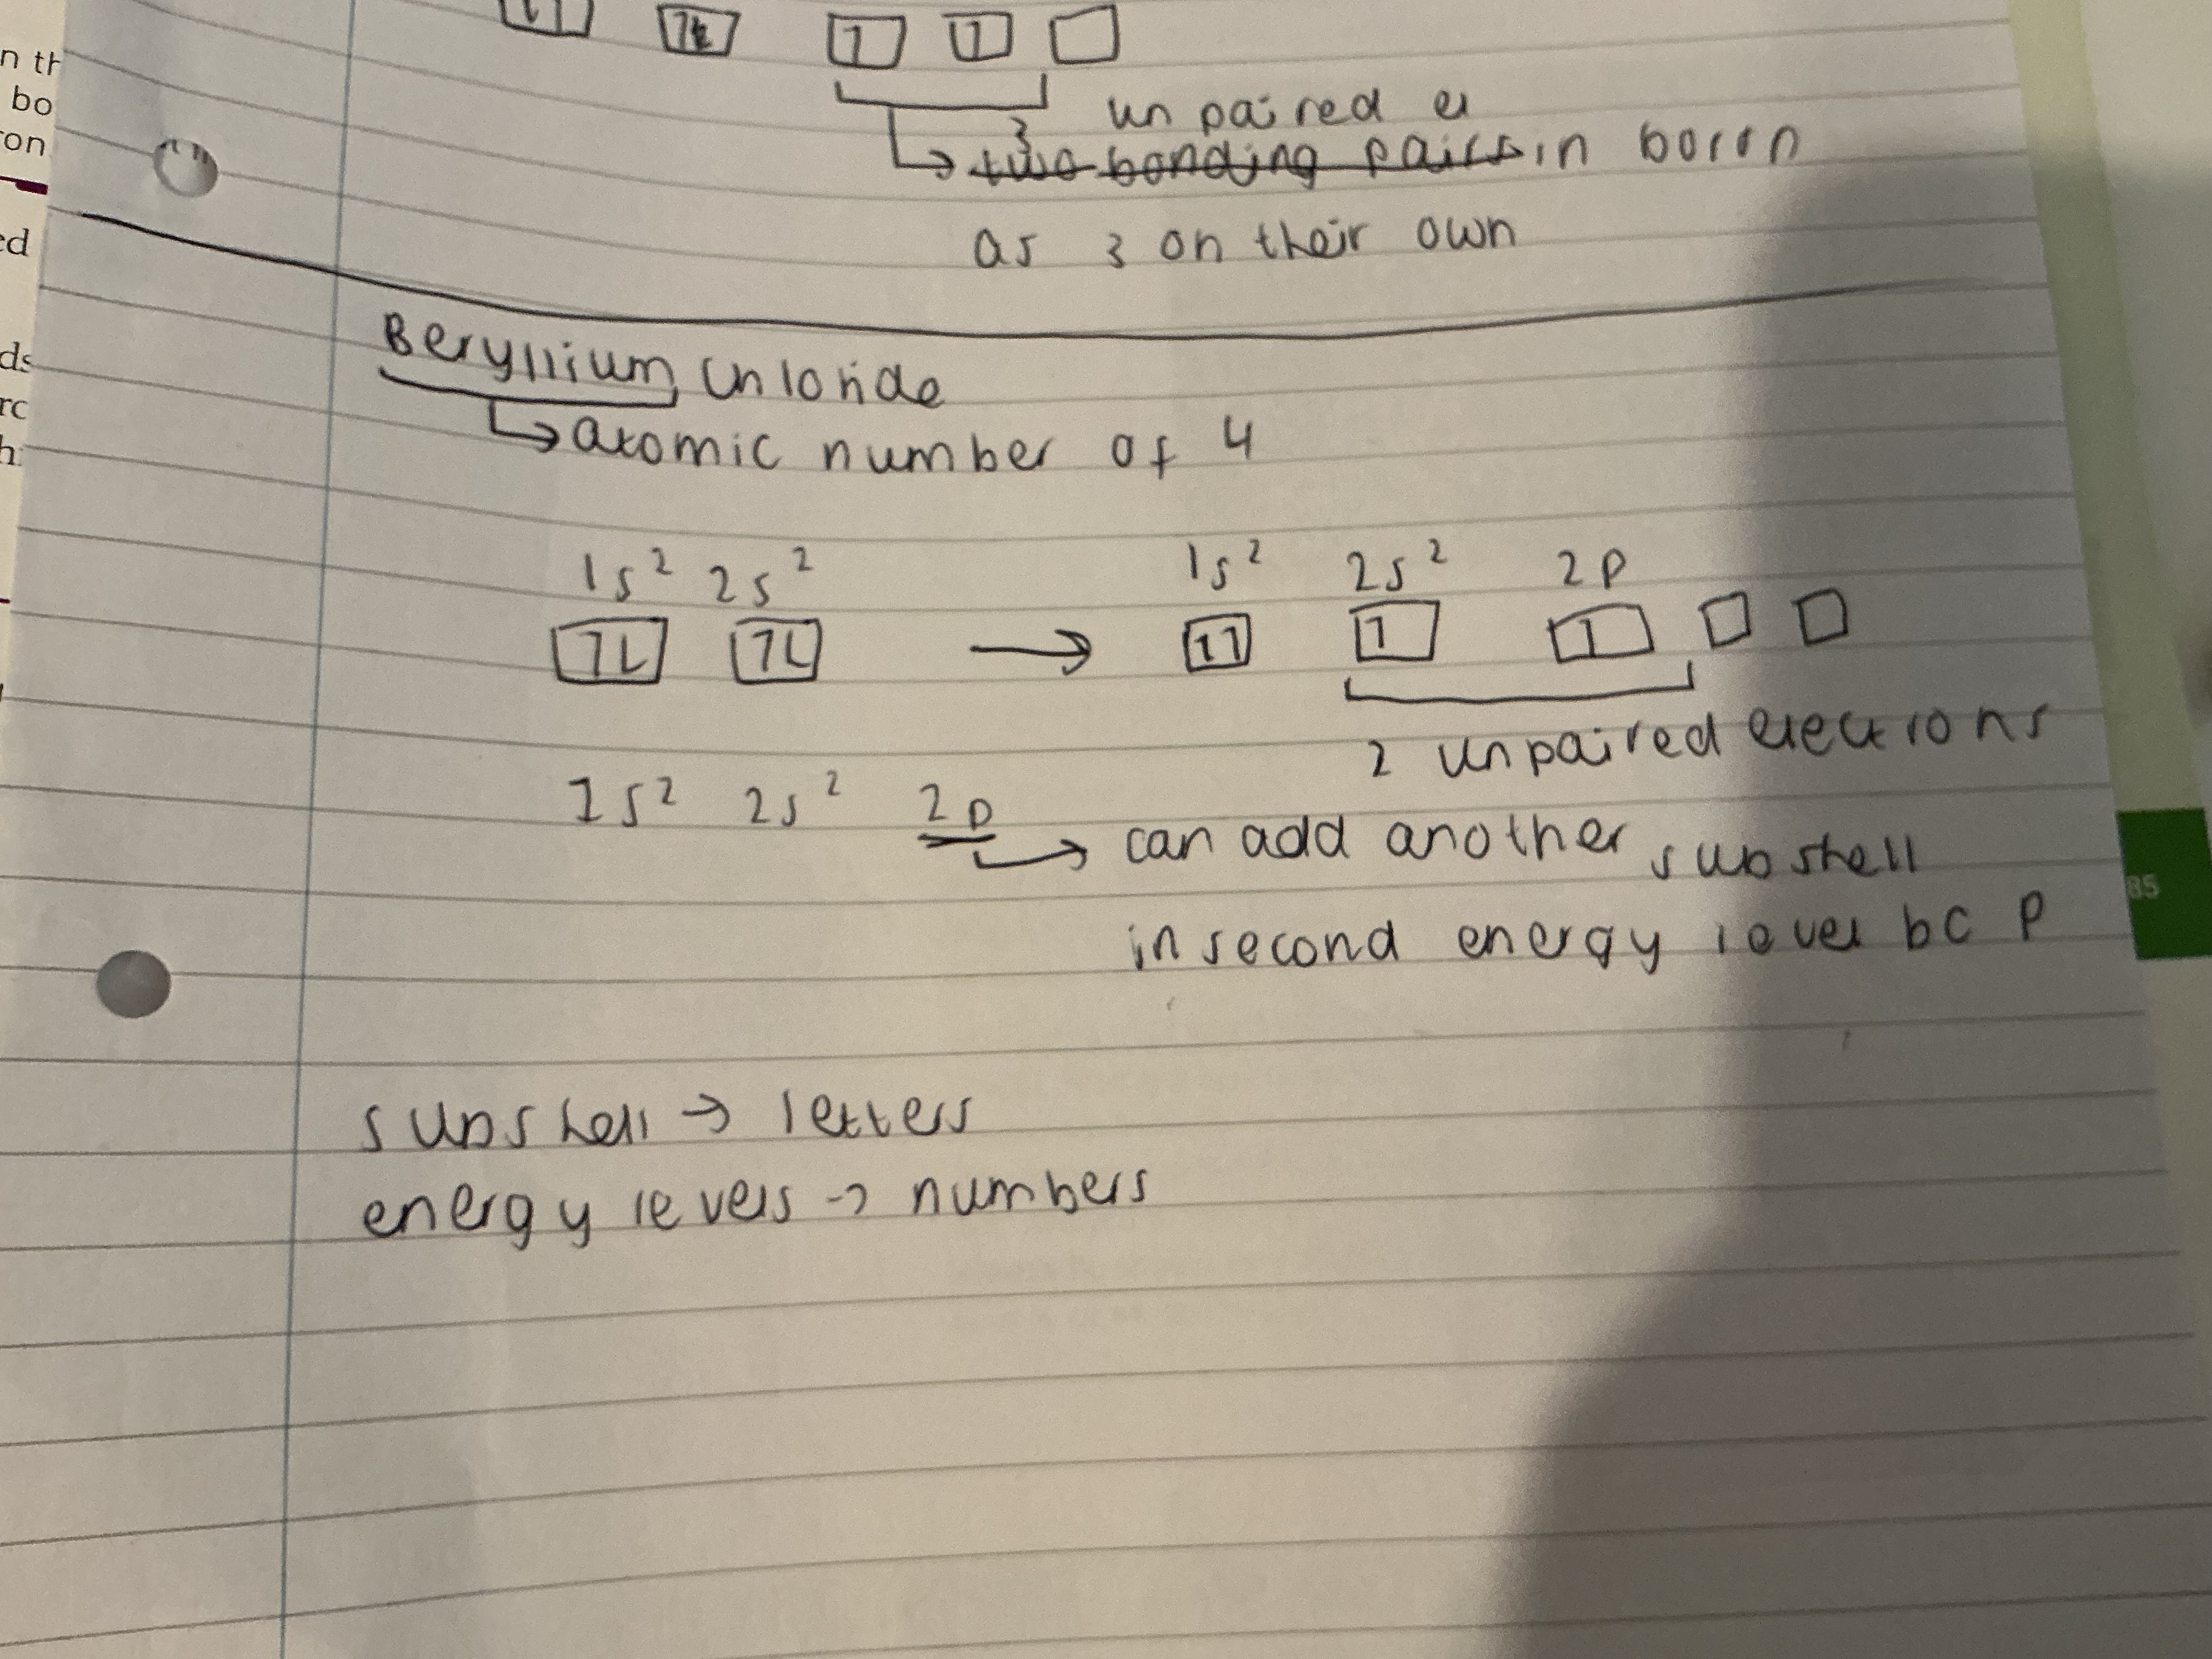 n th
bo
ron
ed
ds
rc
h
1 1 1
unpaired el
3
two bonding pairs in boron
as 3 on their own
Beryllium Chloride
→ atomic number of 4
1s² 2s² 1s² 2s² 2p
1L 1L → 11 1 1
2 unpaired electrons
1s² 2s² 2p → can add another subshell
in second energy level bc p
85
subshell → letters
energy levels → numbers